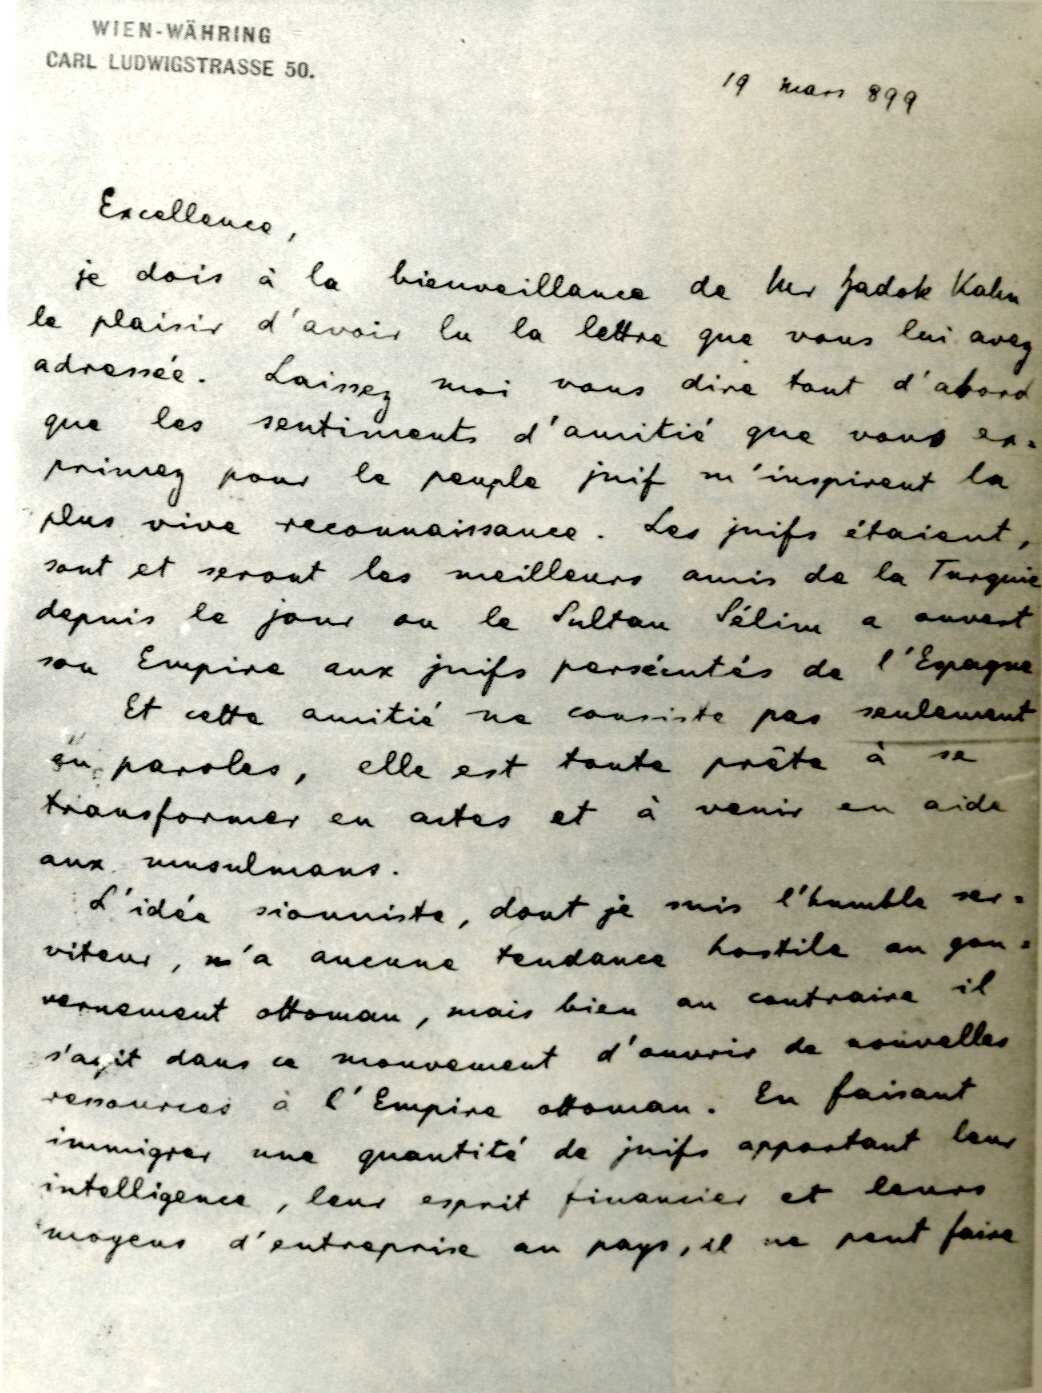 WIEN-WÄHRING
CARL LUDWIGSTRASSE 50.
19 mars 899
Excellence,
je dois à la bienveillance de Mr Zadok Kahn
le plaisir d'avoir lu la lettre que vous lui avez
adressée. Laissez moi vous dire tout d'abord
que les sentiments d'amitié que vous ex-
primez pour le peuple juif m'inspirent la
plus vive reconnaissance. Les juifs étaient,
sont et seront les meilleurs amis de la Turquie
depuis le jour ou le Sultan Sélim a ouvert
son Empire aux juifs persécutés de l'Espagne
Et cette amitié ne consiste pas seulement
en paroles, elle est toute prête à se
transformer en actes et à venir en aide
aux musulmans.
L'idée sionniste, dont je suis l'humble ser-
viteur, n'a aucune tendance hostile au gou-
vernement ottoman, mais bien au contraire il
s'agit dans ce mouvement d'ouvrir de nouvelles
ressources à l'Empire ottoman. En faisant
immigrer une quantité de juifs apportant leur
intelligence, leur esprit financier et leurs
moyens d'entreprise au pays, il ne peut faire